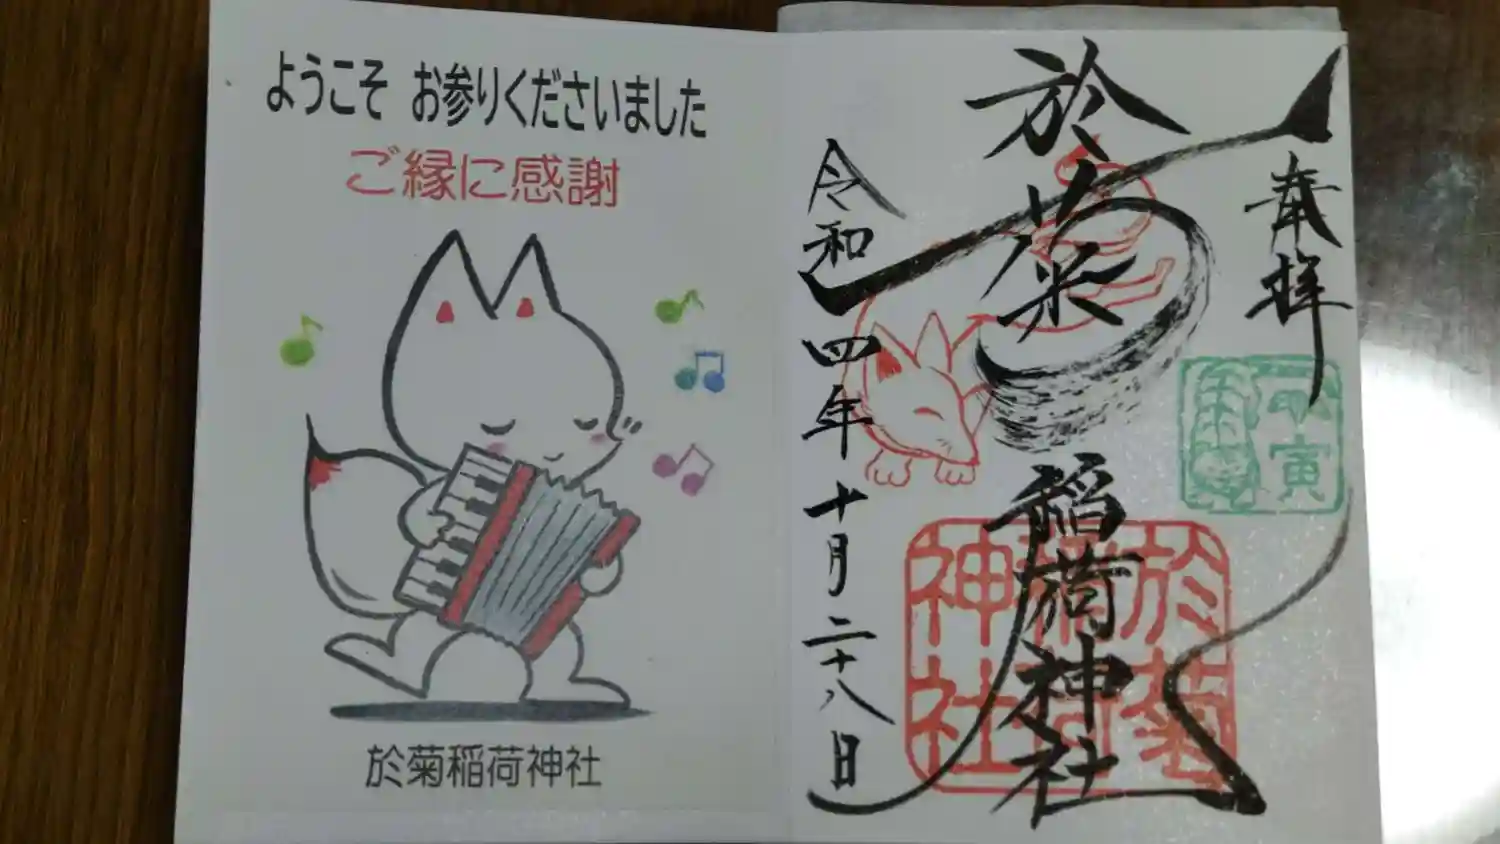 ようこそ お参りくださいました
ご縁に感謝
於菊稲荷神社
奉拝
於菊稲荷神社
令和四年十月二十八日
於菊
稲荷
神社
寅